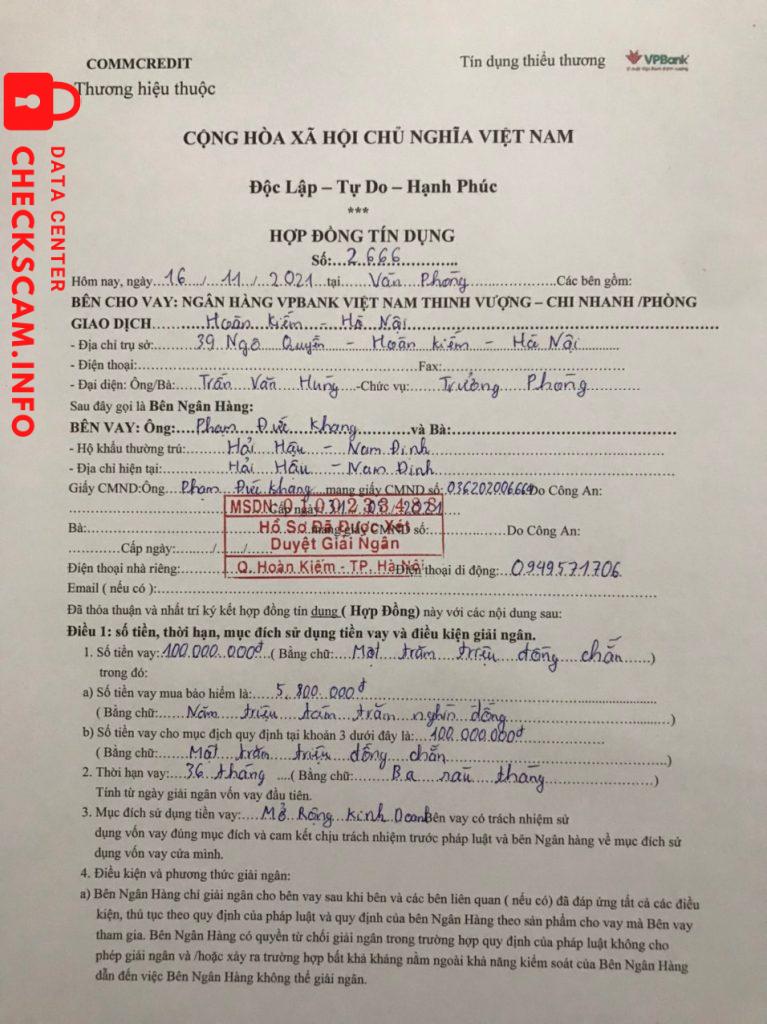 COMMCREDIT Tín dụng thiểu thương VPBank
Thương hiệu thuộc
CHECKSCAM.INFO
DATA CENTER
CỘNG HÒA XÃ HỘI CHỦ NGHĨA VIỆT NAM
Độc Lập – Tự Do – Hạnh Phúc
***
HỢP ĐỒNG TÍN DỤNG
Số:...2.666.............
Hôm nay, ngày...16.../...11.../...2021...tại......Văn Phòng......................Các bên gồm:
BÊN CHO VAY: NGÂN HÀNG VPBANK VIỆT NAM THINH VƯỢNG – CHI NHANH /PHÒNG
GIAO DỊCH............Hoàn Kiếm - Hà Nội............
- Địa chỉ trụ sở:......39 Ngô Quyền - Hoàn Kiếm - Hà Nội......
- Điện thoại:..........................................Fax:..........................................
- Đại diện: Ông/Bà:......Trần Văn Hùng...-Chức vụ:......Trưởng Phòng............
Sau đây gọi là Bên Ngân Hàng:
BÊN VAY: Ông:...Phạm Đức Khang............và Bà:..........................................
- Hộ khẩu thường trú:............Hải Hậu - Nam Định............
- Địa chỉ hiện tại:............Hải Hậu - Nam Định............
Giấy CMND:Ông...Phạm Đức Khang...mang giấy CMND số:036202006664Do Công An:
Cấp ngày:
MSDN: 0102233488
Hồ Sơ Đã Được Xét
Duyệt Giải Ngân
Q. Hoàn Kiếm - TP. Hà Nội
Bà:............mang giấy CMND số:............Do Công An:
............Cấp ngày:....../....../......
Điện thoại nhà riêng:............Điện thoại di động:...0949571706
Email ( nếu có ):..........................................
Đã thỏa thuận và nhất trí ký kết hợp đồng tín dụng ( Hợp Đồng) này với các nội dung sau:
Điều 1: số tiền, thời hạn, mục đích sử dụng tiền vay và điều kiện giải ngân.
1. Số tiền vay:100.000.000đ...( Bằng chữ:......Một trăm triệu đồng chẵn......)
trong đó:
a) Số tiền vay mua bảo hiểm là:......5.800.000đ............
( Bằng chữ:......Năm triệu tám trăm nghìn đồng............)
b) Số tiền vay cho mục địch quy định tại khoản 3 dưới đây là:...100.000.000đ............
( Bằng chữ:......Một trăm triệu đồng chẵn............)
2. Thời hạn vay:...36 tháng....( Bằng chữ:............Ba sáu tháng............)
Tính từ ngày giải ngân vốn vay đầu tiên.
3. Mục đích sử dụng tiền vay:......Mở Rộng Kinh DoanhBên vay có trách nhiệm sử
dụng vốn vay đúng mục đích và cam kết chịu trách nhiệm trước pháp luật và bên Ngân hàng về mục đích sử
dụng vốn vay cửa mình.
4. Điều kiện và phương thức giải ngân:
a) Bên Ngân Hàng chỉ giải ngân cho bên vay sau khi bên và các bên liên quan ( nếu có) đã đáp ứng tất cả các điều
kiện, thủ tục theo quy định của pháp luật và quy định của bên Ngân Hàng theo sản phẩm cho vay mà Bên vay
tham gia. Bên Ngân Hàng có quyền từ chối giải ngân trong trường hợp quy định của pháp luật không cho
phép giải ngân và /hoặc xảy ra trường hợp bất khả kháng nằm ngoài khả năng kiểm soát của Bên Ngân Hàng
dẫn đến việc Bên Ngân Hàng không thể giải ngân.